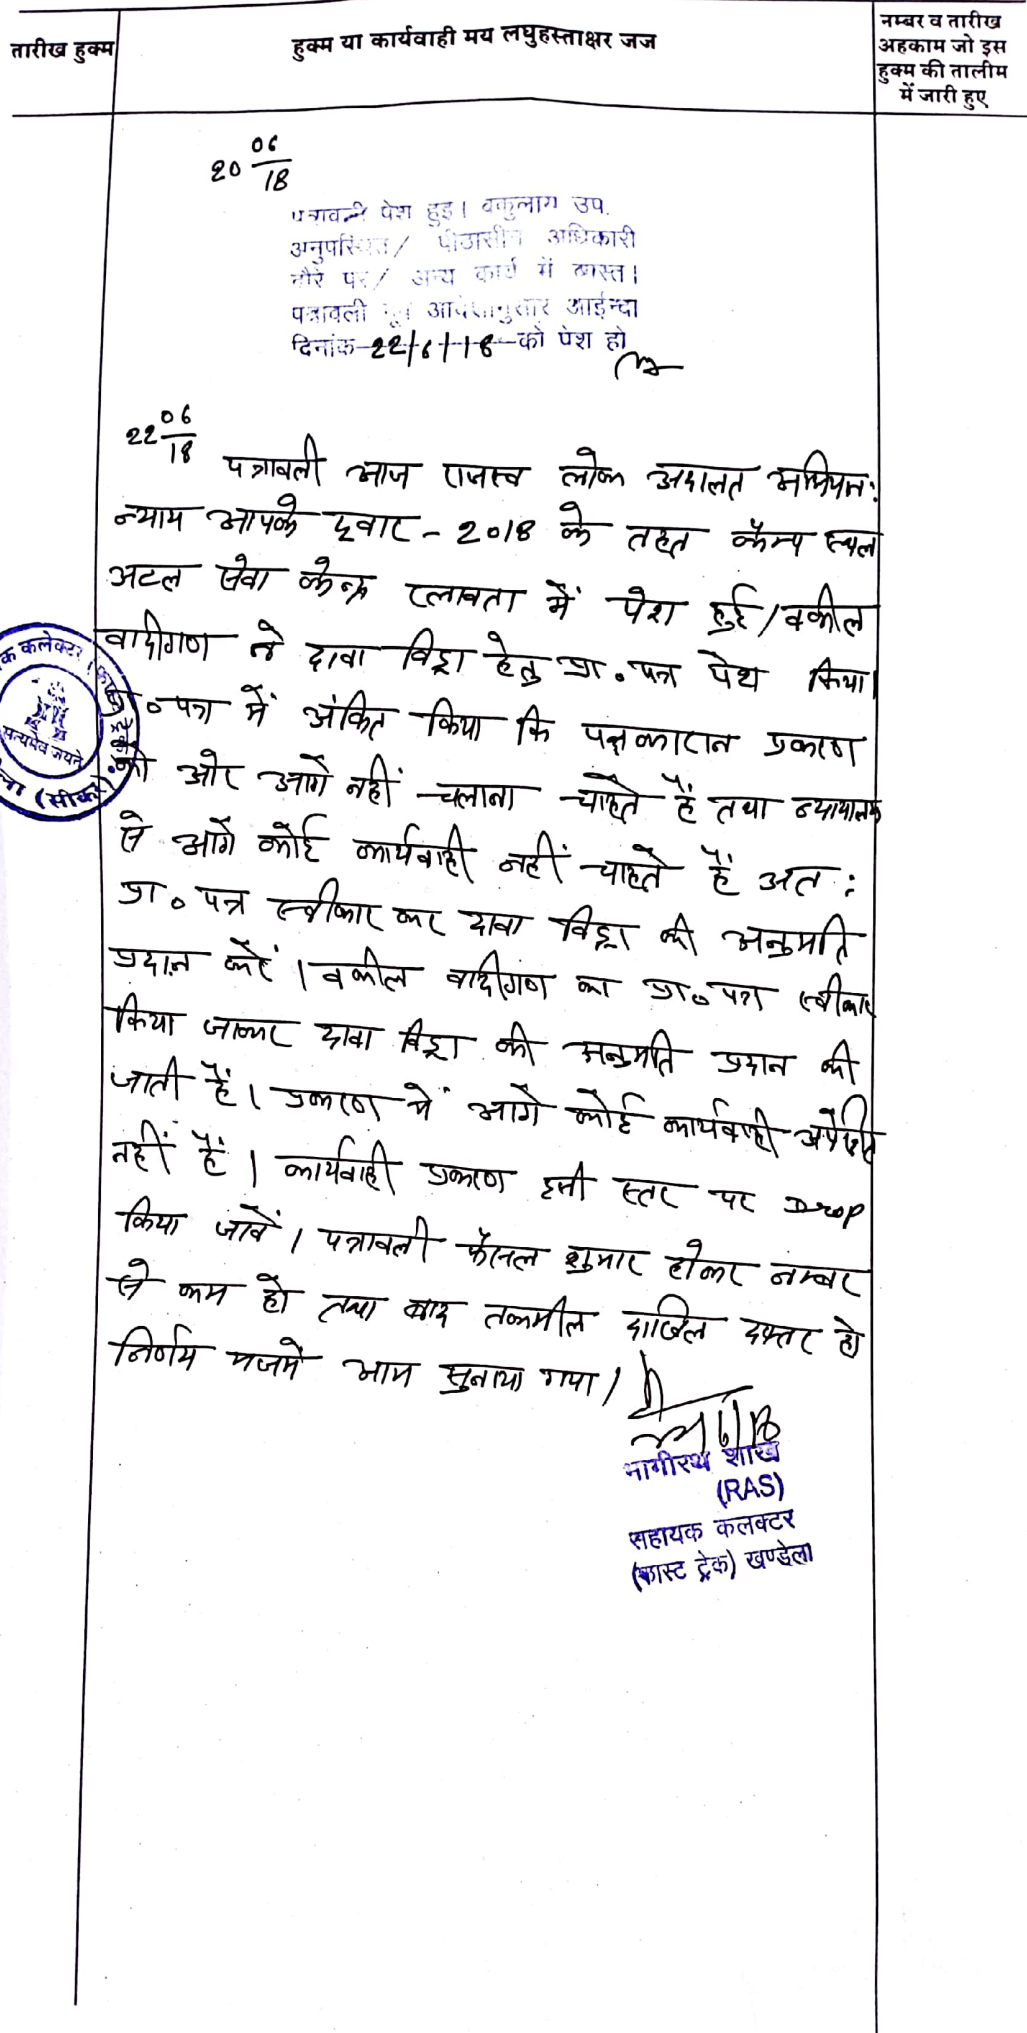 तारीख हुक्म
हुक्म या कार्यवाही मय लघुहस्ताक्षर जज
नम्बर व तारीख
अहकाम जो इस
हुक्म की तालीम
में जारी हुए
20 06/18
पत्रावली पेश हुई। वकुलाय उप.
अनुपस्थित / पीठासीन अधिकारी
दौरे पर / अन्य कार्य में व्यस्त।
पत्रावली पूर्व आदेशानुसार आईन्दा
दिनांक 22/6/18 को पेश हो
22 06/18
पत्रावली आज राजस्व लोक अदालत अभियान:
न्याय आपके द्वार - 2018 के तहत कैम्प स्थल
अटल सेवा केन्द्र रलावता में पेश हुई / वकील
वादीगण ने दावा विड्रा हेतु प्रा.पत्र पेश किया।
प्रा.पत्र में अंकित किया कि पक्षकारान प्रकरण
को ओर आगे नहीं चलाना चाहते हैं तथा न्यायालय
से आगे कोई कार्यवाही नहीं चाहते हैं अत:
प्रा.पत्र स्वीकार कर दावा विड्रा की अनुमति
प्रदान करें। वकील वादीगण का प्रा.पत्र स्वीकार
किया जाकर दावा विड्रा की अनुमति प्रदान की
जाती हैं। प्रकरण में आगे कोई कार्यवाही अपेक्षित
नहीं हैं। कार्यवाही प्रकरण इसी स्तर पर Drop
किया जावें। पत्रावली फैसल शुमार होकर नम्बर
से कम हो तथा बाद तकमील दाखिल दफ्तर हो
निर्णय मजमें आम सुनाया गया।
भागीरथ शाख
(RAS)
सहायक कलक्टर
(फास्ट ट्रेक) खण्डेला
क कलेक्टर
सत्यमेव जयते
ला (सीकर)